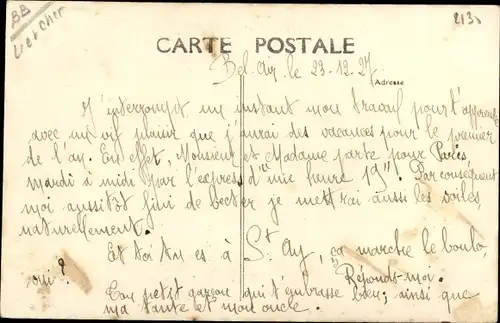 BB
Loir et Cher
2130
CARTE POSTALE
Bel-Air, le 23-12-27
Adresse
J'interrompt un instant mon travail pour t'apprendre
avec un vif plaisir que j'aurai des vacances pour le premier
de l'an. En effet, Monsieur et Madame parte pour Paris,
mardi à midi par l'express d'"une heure 19". Par conséquent
moi aussitôt fini de becter je mettrai aussi les voiles,
naturellement.
Et toi tu es à St Ay, ça marche le boulo,
oui ? Réponds-moi.
Ton petit garçon qui t'embrasse bien; ainsi que
ma tante et mon oncle.